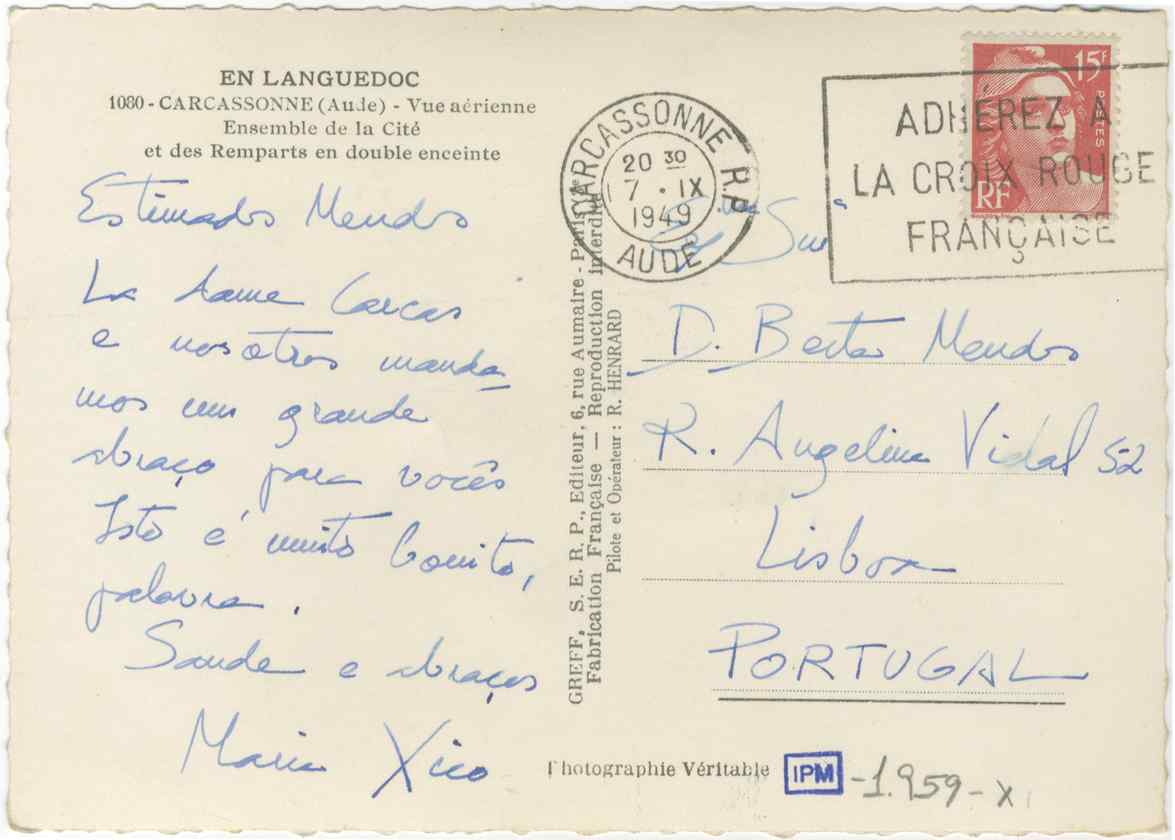 EN LANGUEDOC
1080 - CARCASSONNE (Aude) - Vue aérienne
Ensemble de la Cité
et des Remparts en double enceinte
Estimados Mendes
La dame Carcas
e nosotros manda-
mos um grande
abraço para vocês
Isto é muito bonito,
palavra.
Saude e abraços
Maria Xico
GREFF, S. E. R. P., Editeur, 6, rue Aumaire - Paris
Fabrication Française — Reproduction interdite
Pilote et Opérateur : R. HENRARD
CARCASSONNE R.P.
20 30
7 · IX
1949
AUDE
15F
POSTES
RF
ADHÉREZ A
LA CROIX ROUGE
FRANÇAISE
D. Berta Mendes
R. Angelina Vidal 52
Lisboa
PORTUGAL
Photographie Véritable
IPM -1.959-X